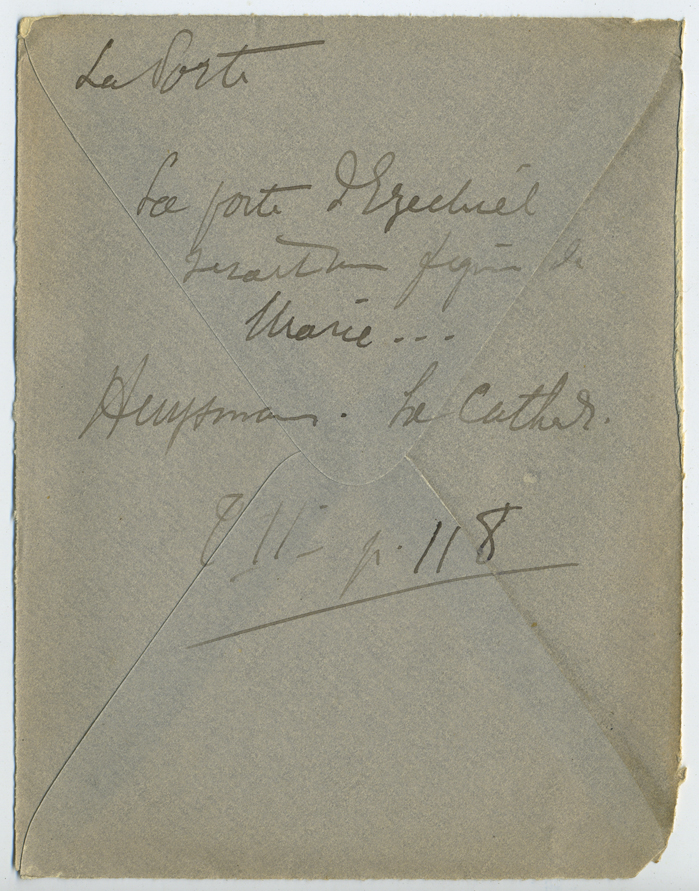 La Porte
La porte d'Ezechiel
serait une figure de
Marie...
Huysmans. La Cathed.
T II- p. 118